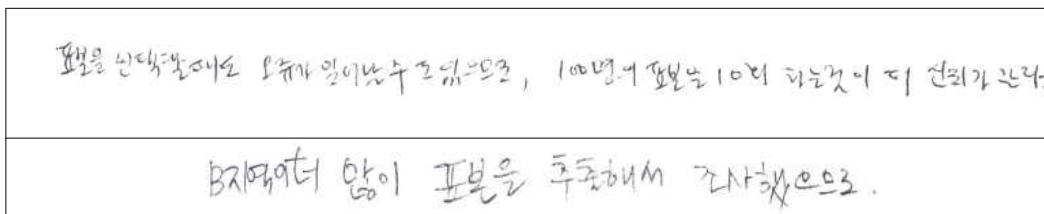 표본을 선택할때에도 오류가 일어날수도 있으므로, 100명의 표본을 10회 하는것이 더 신뢰가 간다.
B지역이 더 많이 표본을 추출해서 조사했으므로.